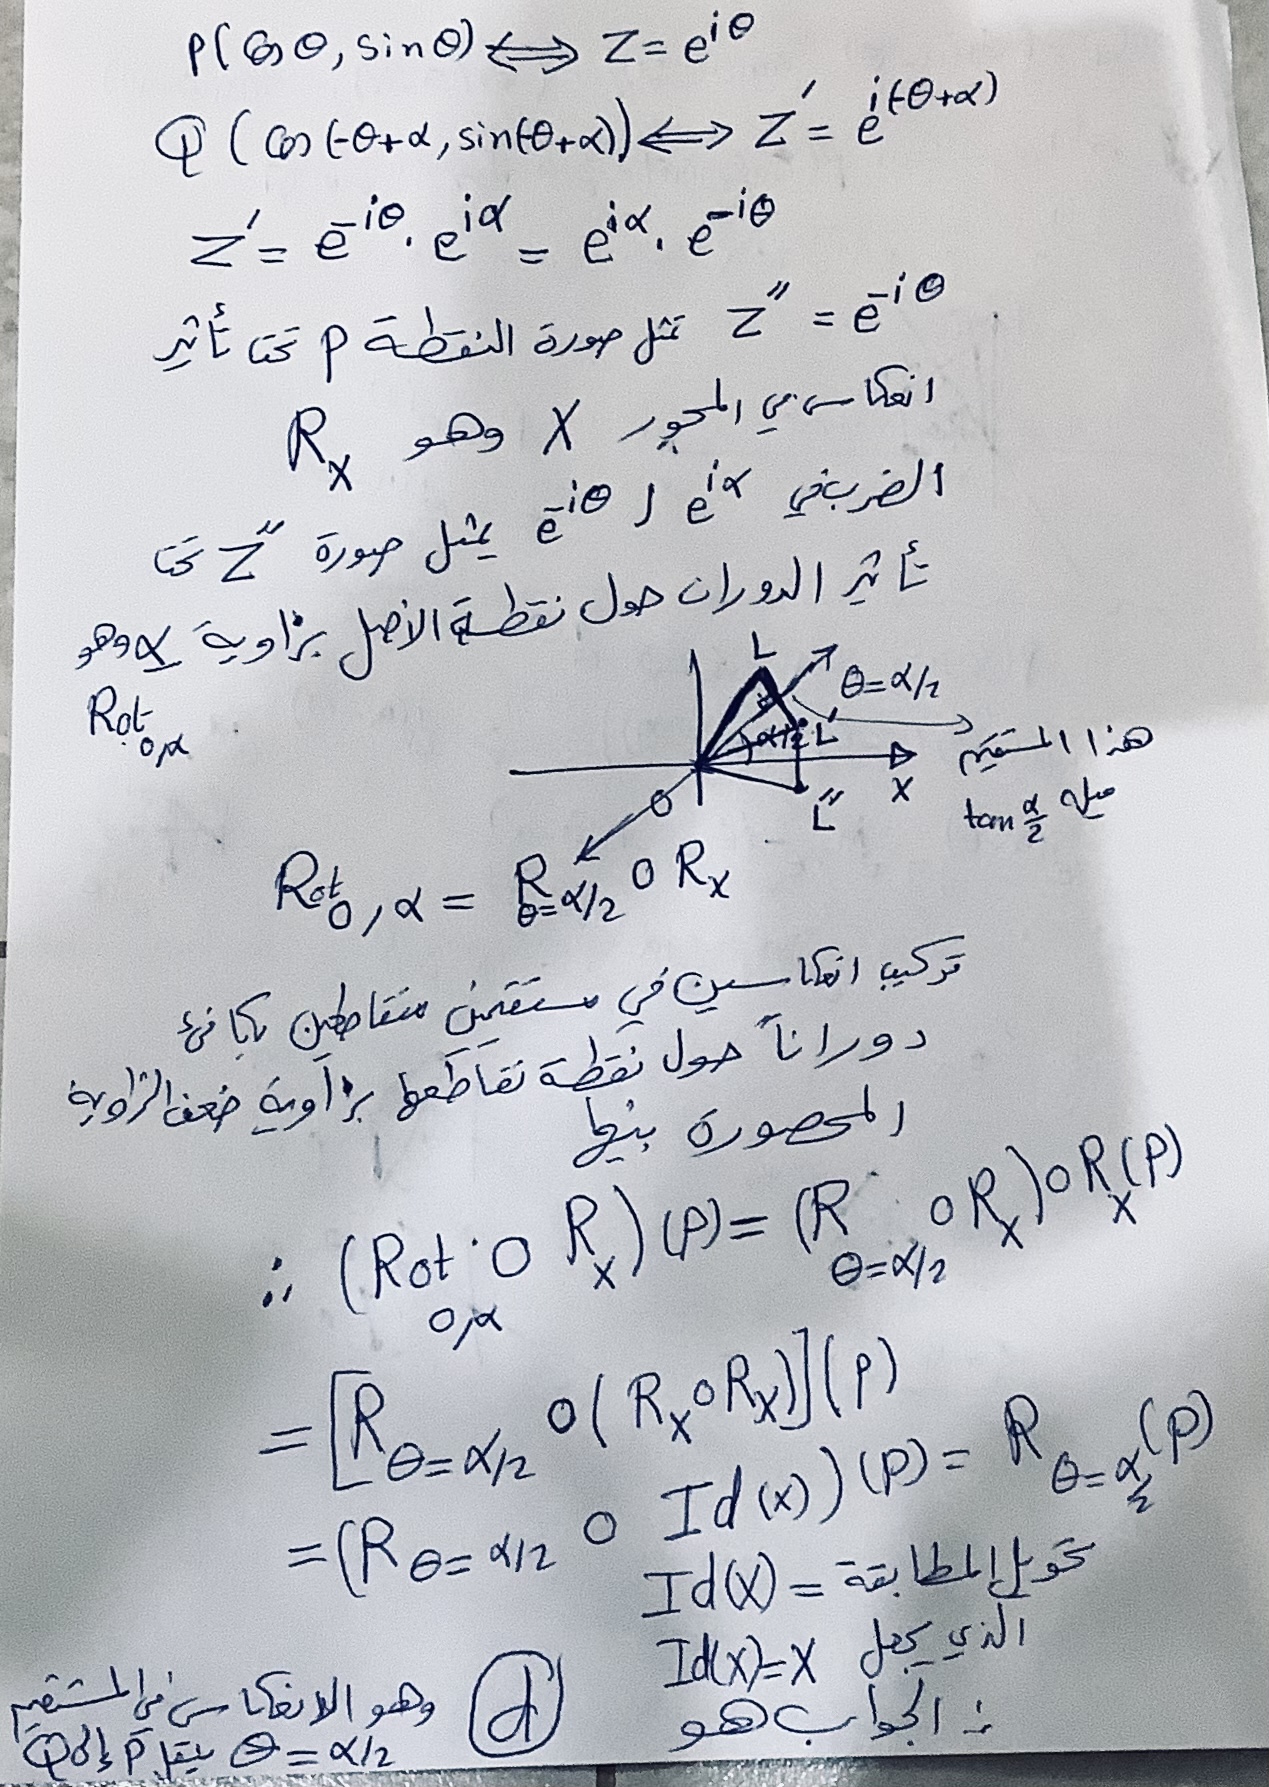 P(cosθ, sinθ) ⟺ Z = e^{iθ}
Q (cos(-θ+α, sin(-θ+α)) ⟺ Z′ = e^{i(-θ+α)}
Z′ = e^{-iθ} . e^{iα} = e^{iα} . e^{-iθ}
Z″ = e^{-iθ} تمثل صورة النقطة P تحت تأثير
انعكاس في المحور X وهو R_X
الضرب في e^{iα} لـ e^{-iθ} يمثل صورة Z″ تحت
تأثير الدوران حول نقطة الأصل بزاوية α وهو
Rot_{O,α}
L
θ=α/2
α/2 L′
هذا المستقيم
X
ميله tan α/2
O
L″
Rot_{O,α} = R_{θ=α/2} o R_X
تركيب انعكاسين في مستقيمين متقاطعين يكافئ
دوراناً حول نقطة تقاطعها بزاوية ضعف الزاوية
المحصورة بينها
∴ (Rot_{O,α} o R_X)(P) = (R_{θ=α/2} o R_X) o R_X(P)
= [R_{θ=α/2} o (R_X o R_X)](P)
= (R_{θ=α/2} o Id(x))(P) = R_{θ=α/2}(P)
Id(X) = تحويل المطابقة
الذي يجعل Id(x)=X
∴ الجواب هو d وهو الانعكاس في المستقيم
θ = α/2 ينقل P إلى Q